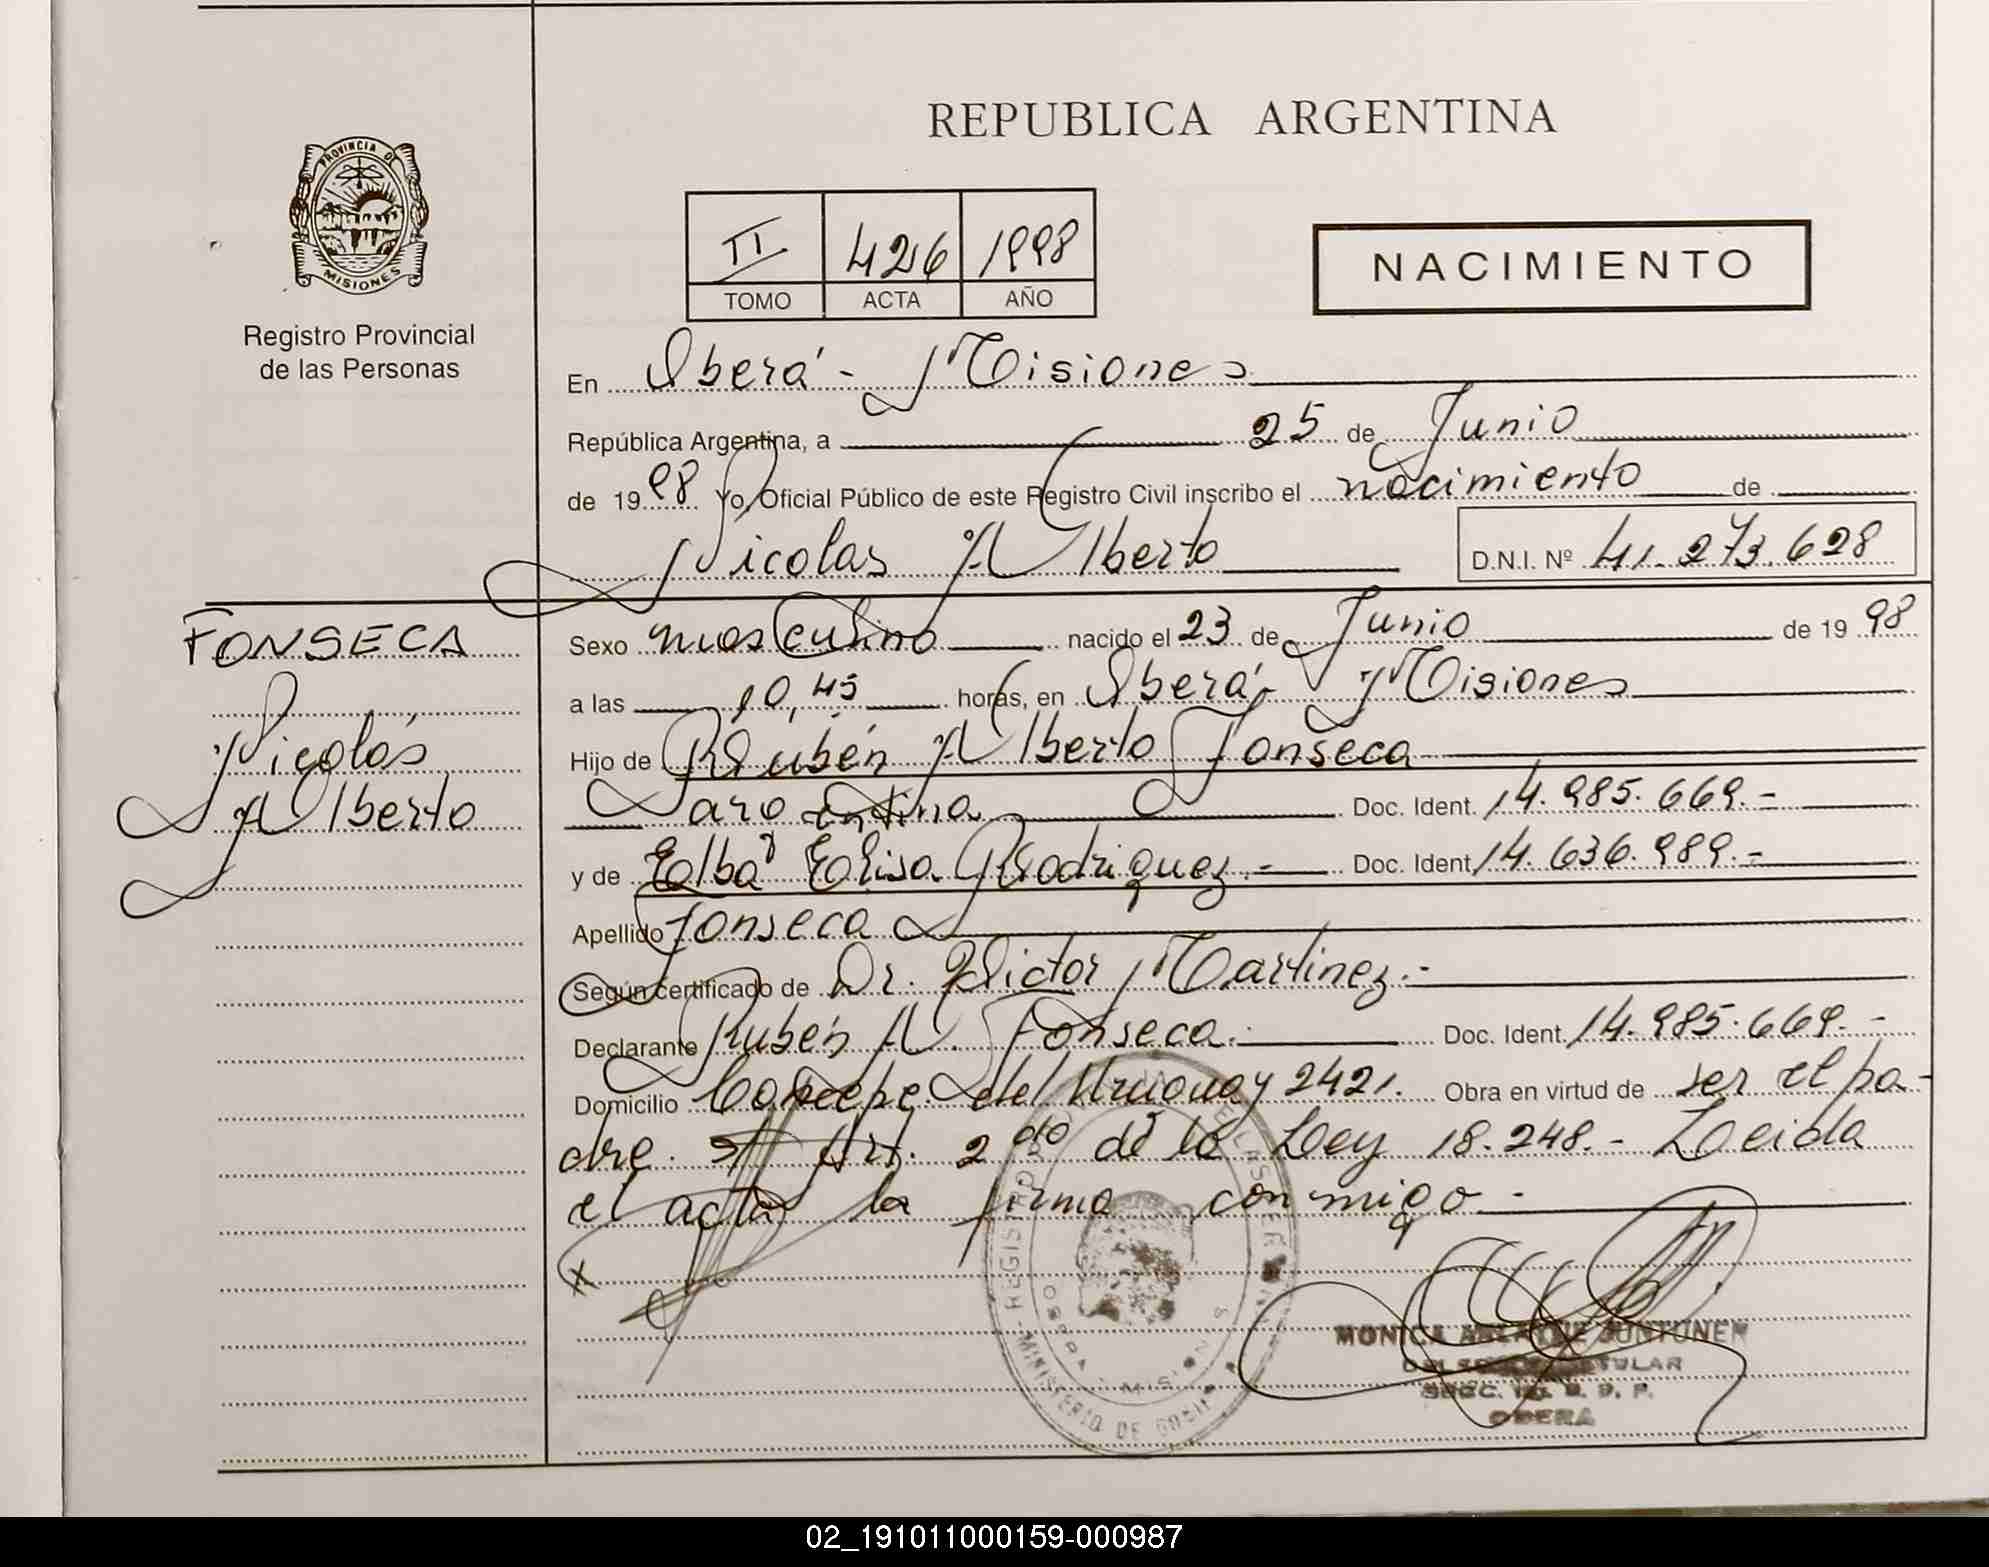 REPUBLICA ARGENTINA
PROVINCIA DE
MISIONES
Registro Provincial
de las Personas
II 426 1998
TOMO ACTA AÑO
NACIMIENTO
En Oberá - Misiones
República Argentina, a 25 de Junio
de 1998 Yo, Oficial Público de este Registro Civil inscribo el nacimiento de
Nicolas Alberto D.N.I. Nº 41.273.628
FONSECA
Nicolás
Alberto
Sexo masculino nacido el 23 de Junio de 1998
a las 10,45 horas, en Oberá, Misiones
Hijo de Rubén Alberto Fonseca
Doc. Ident. 14.985.669.-
y de Elba Elisa Rodriguez.- Doc. Ident. 14.636.989.-
Apellido Fonseca
Según certificado de Dr. Victor Martinez.-
Declarante Rubén A. Fonseca. Doc. Ident. 14.985.669.-
Domicilio Concepc. del Uruguay 2421. Obra en virtud de ser el pa-
dre. Art. 2do de la Ley 18.248.- Leida
el acta la firma conmigo.-
x
MINISTERIO DE GOBIERNO
OBERA MISIONES
MONICA JUNTUNEN
TITULAR
OBERA
02_191011000159-000987